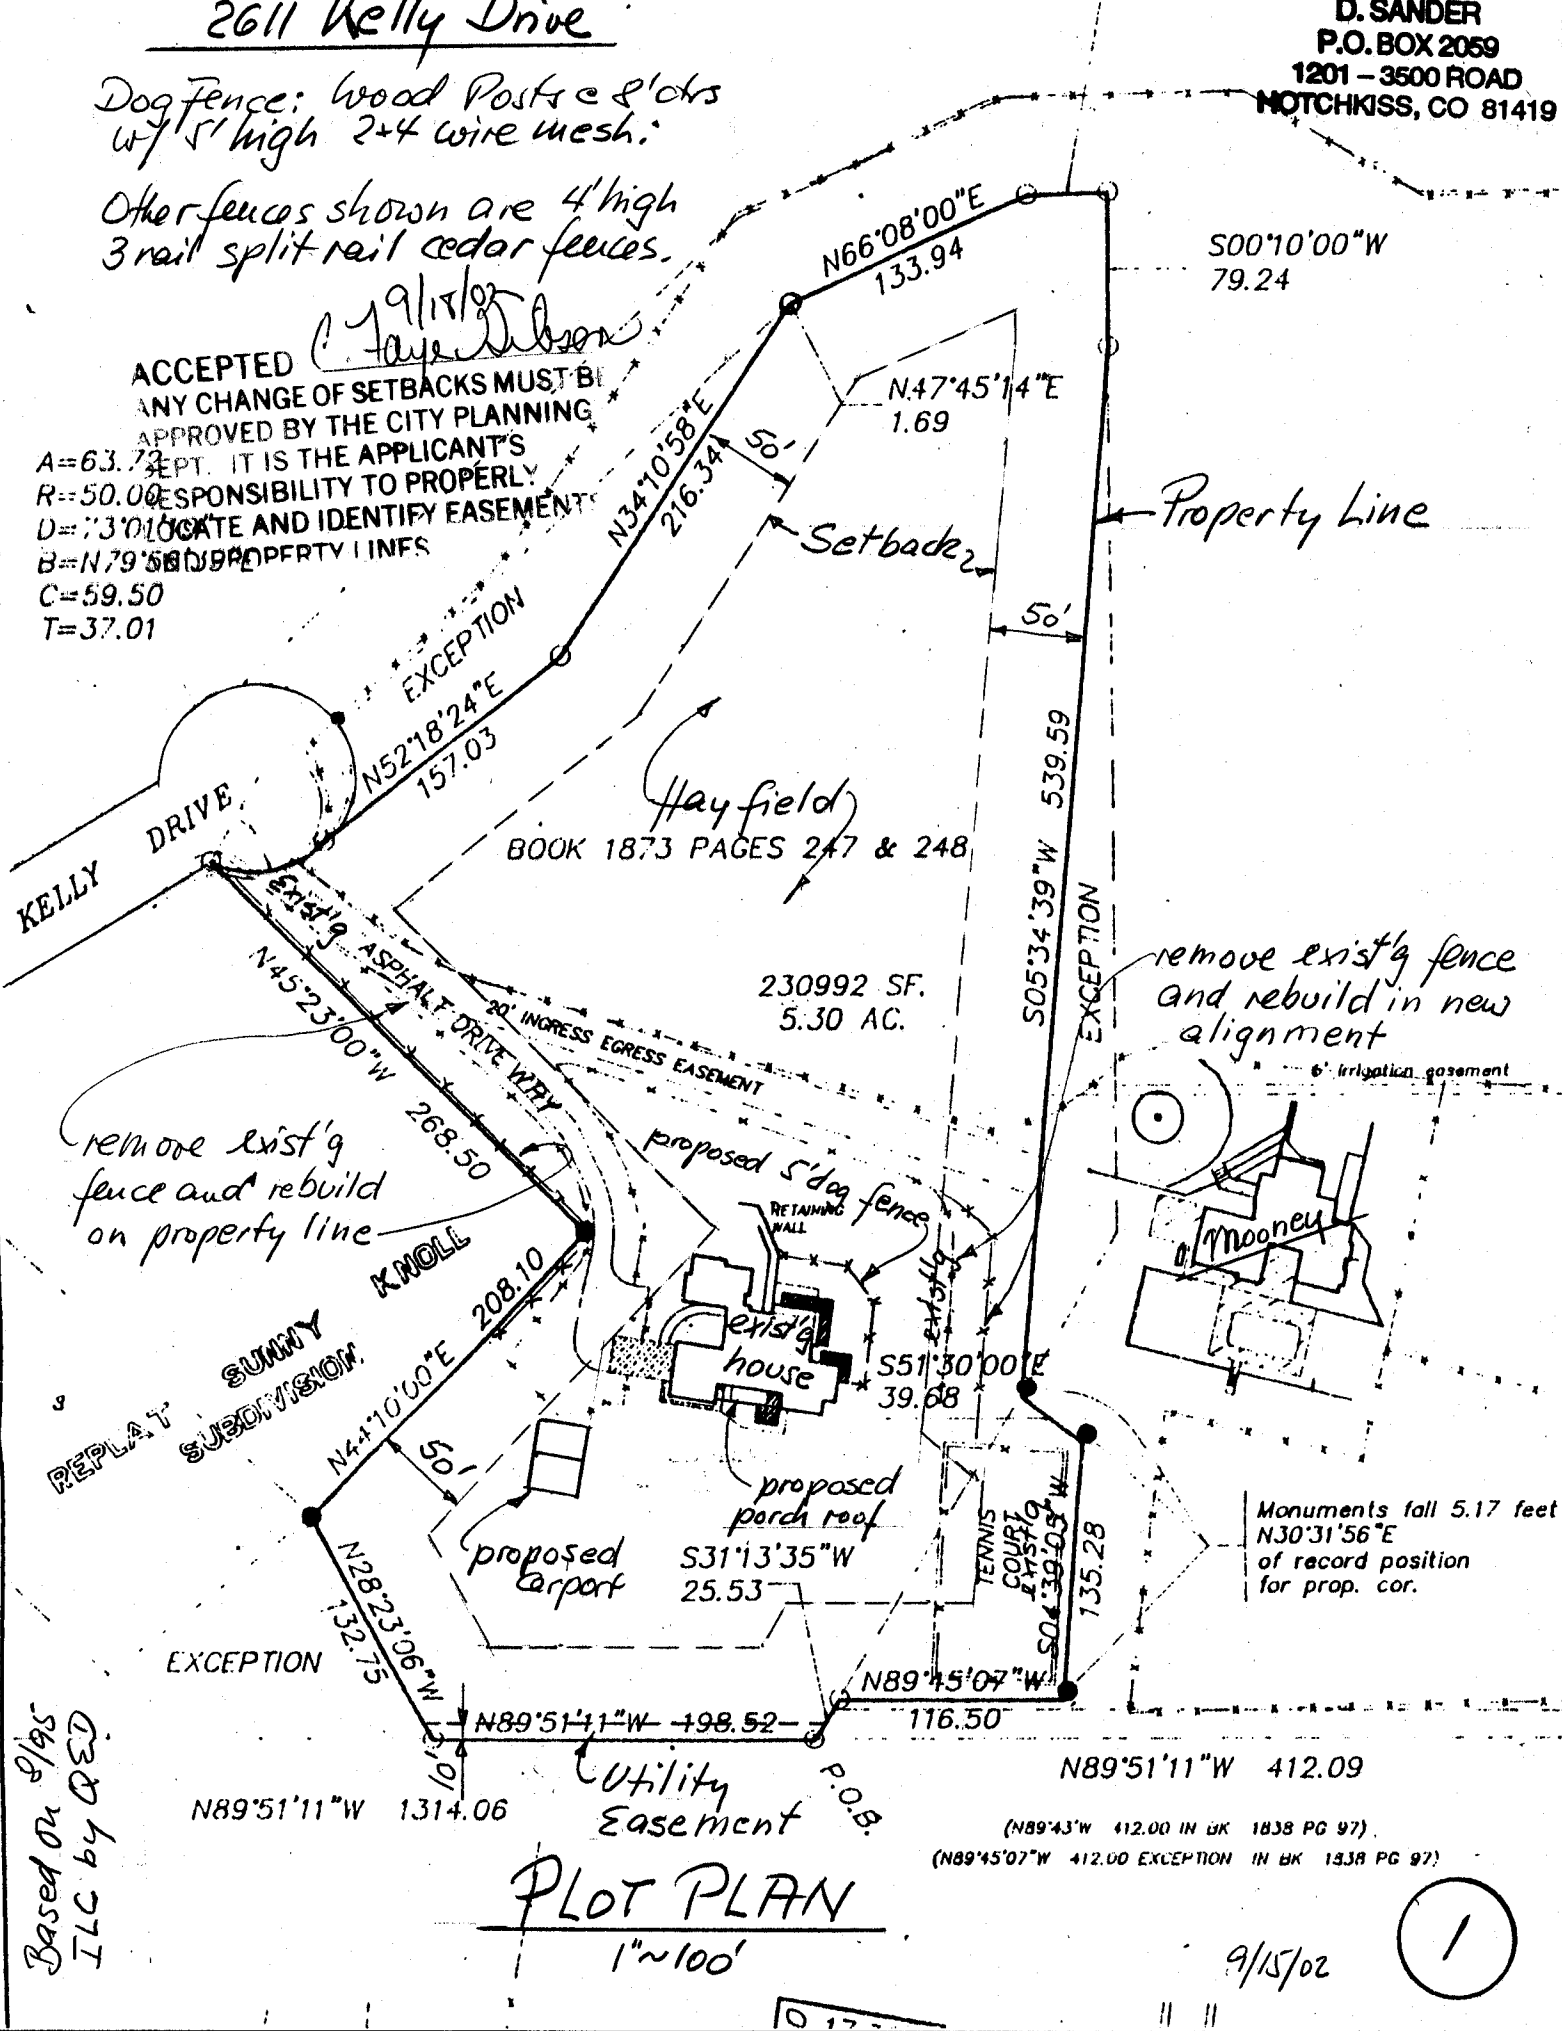 2611 Kelly Drive
D. SANDER
P.O. BOX 2059
1201 – 3500 ROAD
HOTCHKISS, CO 81419
Dog Fence: Wood Posts @ 8' ctrs
w/ 5' high 2×4 wire mesh.
Other fences shown are 4' high
3 rail split rail cedar fences.
9/18/02
C. Faye Gibson
ACCEPTED
ANY CHANGE OF SETBACKS MUST BE
APPROVED BY THE CITY PLANNING
DEPT. IT IS THE APPLICANT'S
RESPONSIBILITY TO PROPERLY
LOCATE AND IDENTIFY EASEMENTS
AND PROPERTY LINES
A=63.72
R=50.00
C=59.50
T=37.01
N66°08'00"E
133.94
S00°10'00"W
79.24
N47°45'14"E
1.69
N34°10'58"E
216.34
50'
Setback
Property Line
50'
EXCEPTION
N52°18'24"E
157.03
S05°34'39"W 539.59
EXCEPTION
Hayfield
BOOK 1873 PAGES 247 & 248
KELLY DRIVE
exist'g ASPHALT DRIVEWAY
20' INGRESS EGRESS EASEMENT
N45°23'00"W
268.50
230992 SF.
5.30 AC.
remove exist'g fence
and rebuild in new
alignment
6' irrigation easement
remove exist'g
fence and rebuild
on property line
proposed 5' dog fence
RETAINING
WALL
exist'g
Mooney
REPLAT SUNNY KNOLL
SUBDIVISION
3
N44°10'00"E 208.10
50'
exist'g
house
S51°30'00"E
39.68
proposed
porch roof
proposed
carport
S31°13'35"W
25.53
TENNIS
COURT
exist'g
S04°39'05"W
135.28
Monuments fall 5.17 feet
N30°31'56"E
of record position
for prop. cor.
EXCEPTION
N28°23'06"W
132.75
N89°45'07"W
116.50
N89°51'11"W 198.52
10'
Utility
Easement
P.O.B.
N89°51'11"W 1314.06
N89°51'11"W 412.09
(N89°43'W 412.00 IN BK 1838 PG 97)
(N89°45'07"W 412.00 EXCEPTION IN BK 1838 PG 97)
Based on 8/95
ILC by QED
PLOT PLAN
1"~100'
9/15/02
1